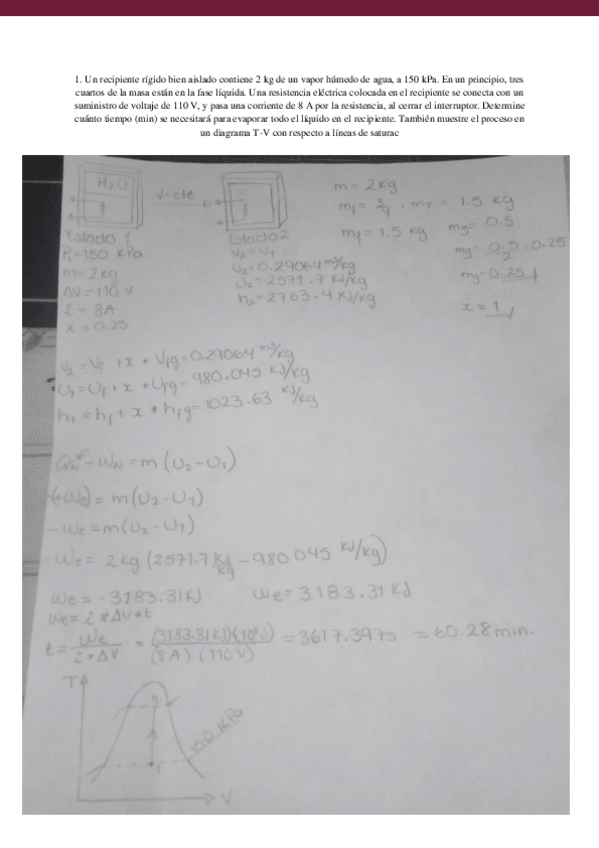 1. Un recipiente rígido bien aislado contiene 2 kg de un vapor húmedo de agua, a 150 kPa. En un principio, tres
cuartos de la masa están en la fase líquida. Una resistencia eléctrica colocada en el recipiente se conecta con un
suministro de voltaje de 110 V, y pasa una corriente de 8 A por la resistencia, al cerrar el interruptor. Determine
cuánto tiempo (min) se necesitará para evaporar todo el líquido en el recipiente. También muestre el proceso en
un diagrama T-V con respecto a líneas de saturac
H₂O
V-cte
Estado 1
P₁=150 kPa
m=2kg
ΔV=110 V
i=8A
x=0.25
Estado2
V₂=V₁
V₂=0.29064 m³/kg
U₂=2571.7 KJ/kg
h₂=2763.4 KJ/kg
m=2kg
mf=3/4·mT=1.5 kg
mf=1.5 kg
mg=0.5
mg=0.5/2=0.25
mg=0.25
x=1
V₂=Vf+x*Vfg=0.29064 m³/kg
U₁=Uf+x*Ufg=980.045 KJ/kg
h₁=hf+x*hfg=1023.63 KJ/kg
-WN=m(U₂-U₁)
(+We)=m(U₂-U₁)
-We=m(U₂-U₁)
-We=2kg(2571.7 KJ/kg-980.045 KJ/kg)
We=-3183.31KJ We=3183.31KJ
We=i*ΔV*t
t=We/i*ΔV=(3183.31KJ)(10³J)/(8A)(110V)=3617.397s=60.28min.
T
2
150 kPa
1
V